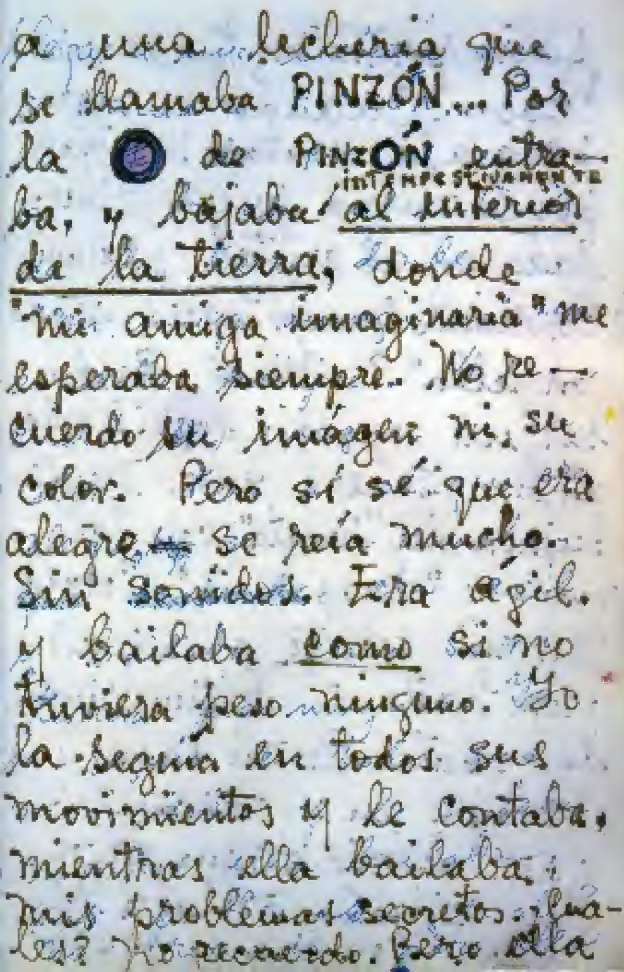 a una lechería que
se llamaba PINZÓN... Por
la O de PINZÓN entra—
INTEMPESTIVAMENTE
ba, y bajaba al interior
de la tierra, donde
"mi amiga imaginaria" me
esperaba siempre. No re—
cuerdo su imágen ni su
color. Pero sí sé que era
alegre, se reía mucho.
Sin sonidos. Era ágil.
y bailaba como si no
tuviera peso ninguno. Yo
la seguía en todos sus
movimientos y le contaba,
mientras ella bailaba,
mis problemas secretos. Cuá-
les? No recuerdo. Pero ella